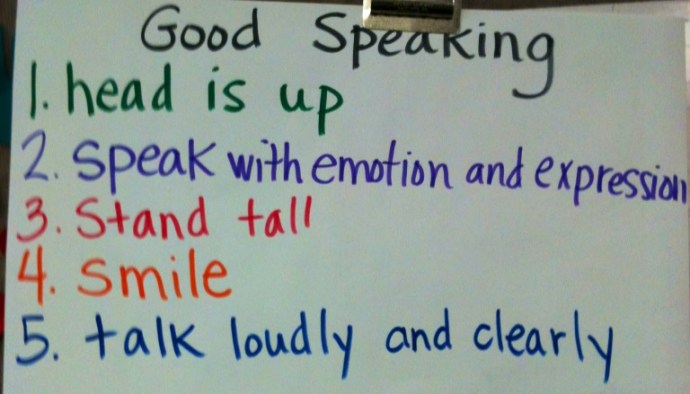 Good Speaking
1. head is up
2. Speak with emotion and expression
3. Stand tall
4. Smile
5. talk loudly and clearly